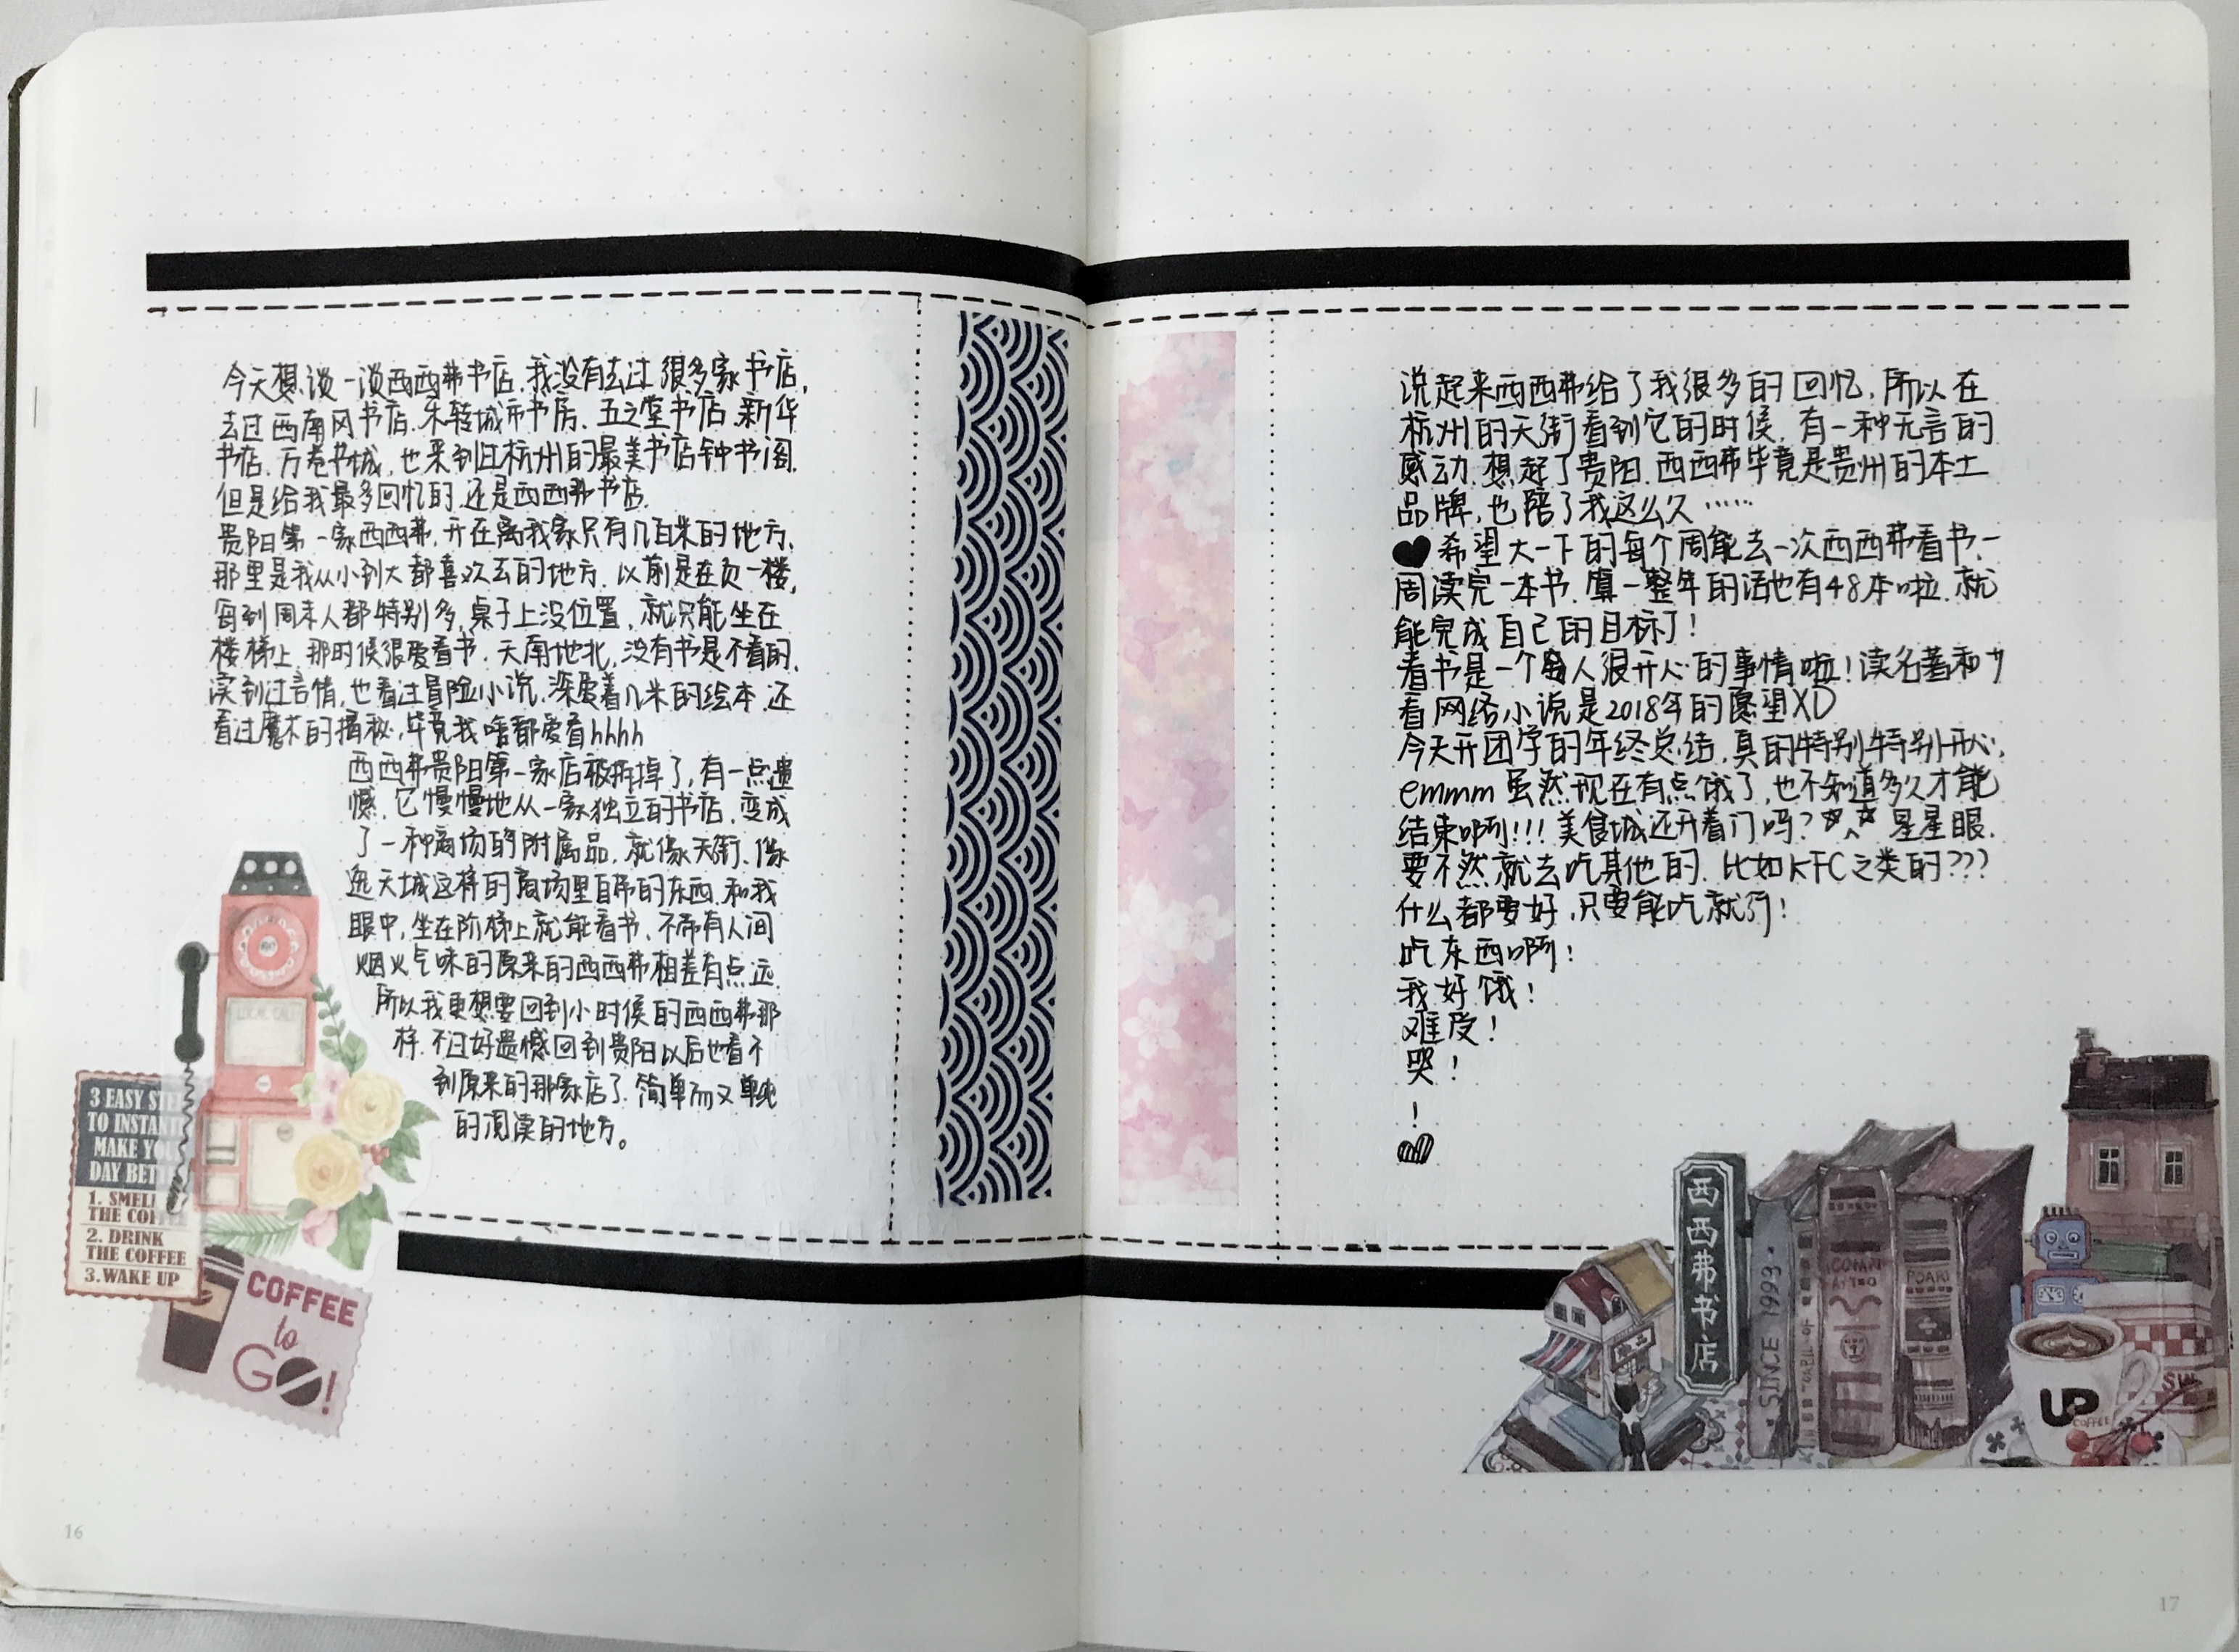 今天想谈一谈西西弗书店.我没有去过很多家书店,
去过西南风书店.朵转城市书房.五之堂书店.新华
书店.万卷书城,也来到过杭州的最美书店钟书阁.
但是给我最多回忆的.还是西西弗书店.
贵阳第一家西西弗,开在离我家只有几百米的地方.
那里是我从小到大都喜欢去的地方.以前是在负一楼,
每到周末人都特别多,桌子上没位置,就只能坐在
楼梯上.那时候很爱看书.天南地北,没有书是不看的.
读到过言情,也看过冒险小说.深爱着几米的绘本.还
看过魔术的揭秘,毕竟我啥都爱看hhhh
西西弗贵阳第一家店被拆掉了,有一点遗
憾.它慢慢地从一家独立的书店,变成
了一种商场的附属品,就像天街、像
逸天城这样的商场里自带的东西.和我
眼中,坐在阶梯上就能看书、不带有人间
烟火气味的原来的西西弗相差有点远.
所以我更想要回到小时候的西西弗那
样.不过好遗憾回到贵阳以后也看不
到原来的那家店了.简单而又单纯
的阅读的地方。
3 EASY STE
TO INSTANT
MAKE YO
DAY BET
1. SMELL
THE COFFEE
2. DRINK
THE COFFEE
3.WAKE UP
COFFEE
to
GO!
LOCAL CALL
16
说起来西西弗给了我很多的回忆,所以在
杭州的天街看到它的时候,有一种无言的
感动.想起了贵阳.西西弗毕竟是贵州的本土
品牌,也陪了我这么久……
希望大一下的每个周能去一次西西弗看书.一
周读完一本书.算一整年的话也有48本啦.就
能完成自己的目标了!
看书是一个令人很开心的事情啦!读名著和少
看网络小说是2018年的愿望XD
今天开团学的年终总结,真的特别特别开心,
emmm虽然现在有点饿了,也不知道多久才能
结束啊!!!美食城还开着门吗?☆^☆星星眼.
要不然就去吃其他的.比如KFC之类的???
什么都要好,只要能吃就行!
吃东西啊!
我好饿!
难受!
哭!
!
西西弗书店
·SINCE 1993·
UP
COFFEE
17